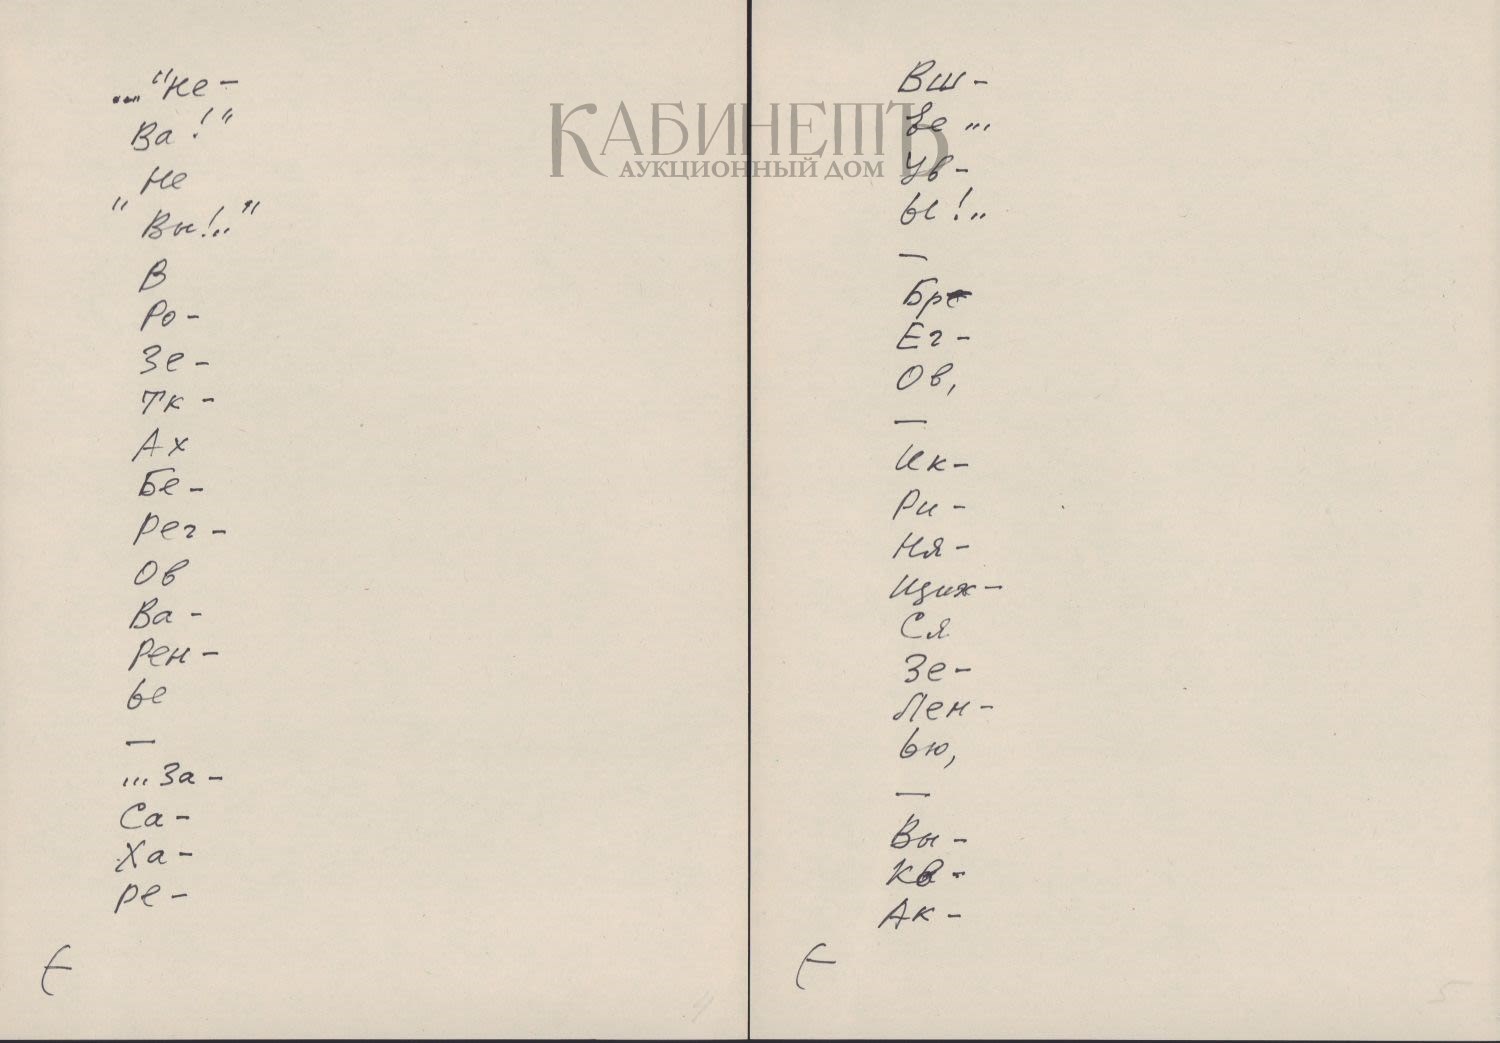 ..."Не-
Ва!"
Не
"Вы!.."
В
Ро-
Зе-
тк-
Ах
Бе-
Рег-
Ов
Ва-
Рен-
ье
—
...За-
Са-
Ха-
Ре-
4
КАБИНЕТЪ
АУКЦИОННЫЙ ДОМ
Вш-
Ее...
Ув-
ы!..
—
Бр-
Ег-
Ов,
—
Ик-
Ри-
Ня-
Щих-
Ся
Зе-
Лен-
ью,
—
Вы-
Кв-
Ак-
5